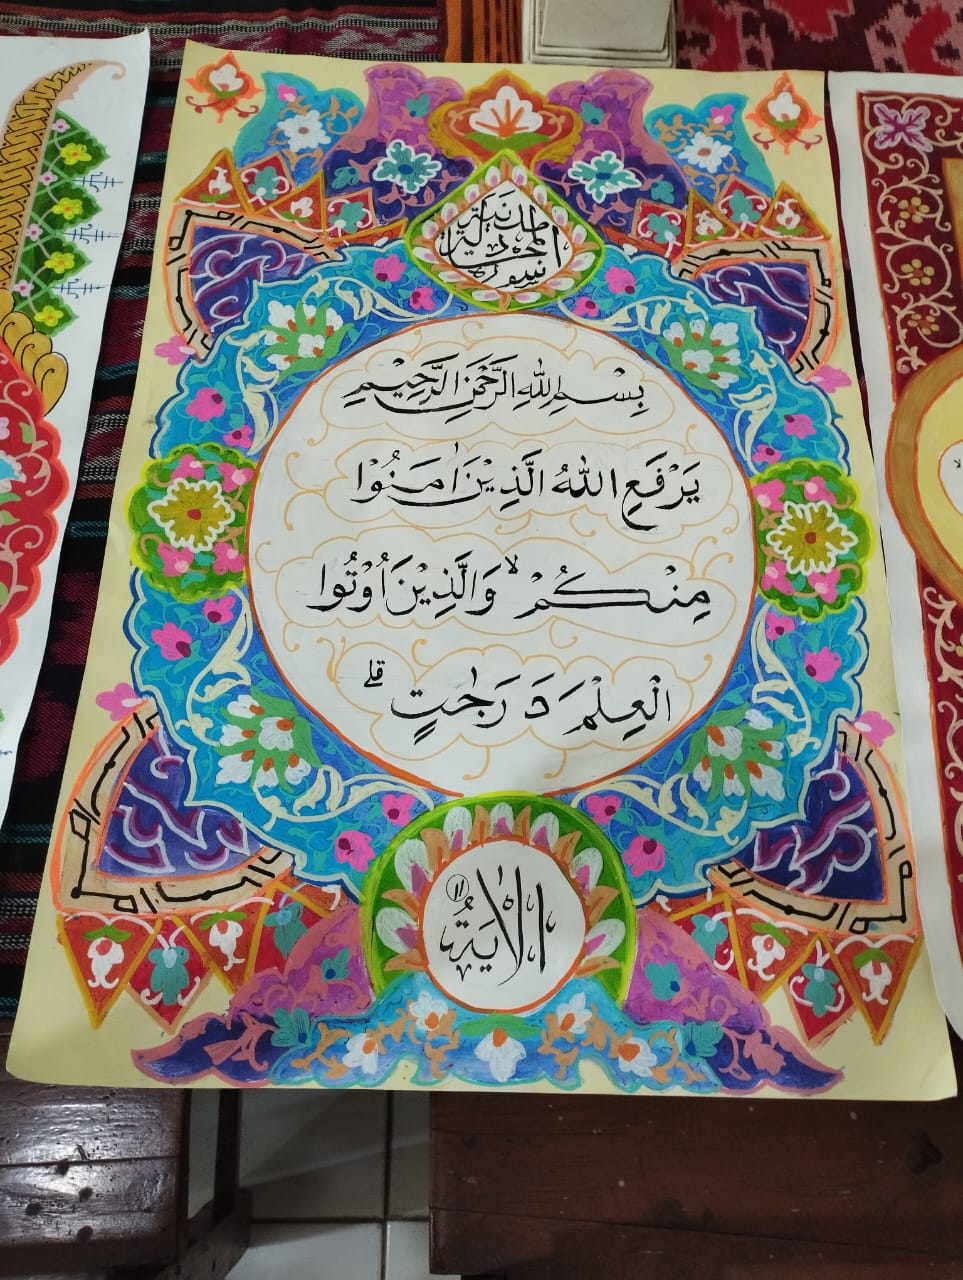 سورة المجادلة المدنية
بِسْمِ اللهِ الرَّحْمٰنِ الرَّحِيْمِ
يَرْفَعِ اللهُ الَّذِيْنَ اٰمَنُوْا
مِنْكُمْۙ وَالَّذِيْنَ اُوْتُوا
الْعِلْمَ دَرَجٰتٍۗ
الْاٰيَةُ ١١